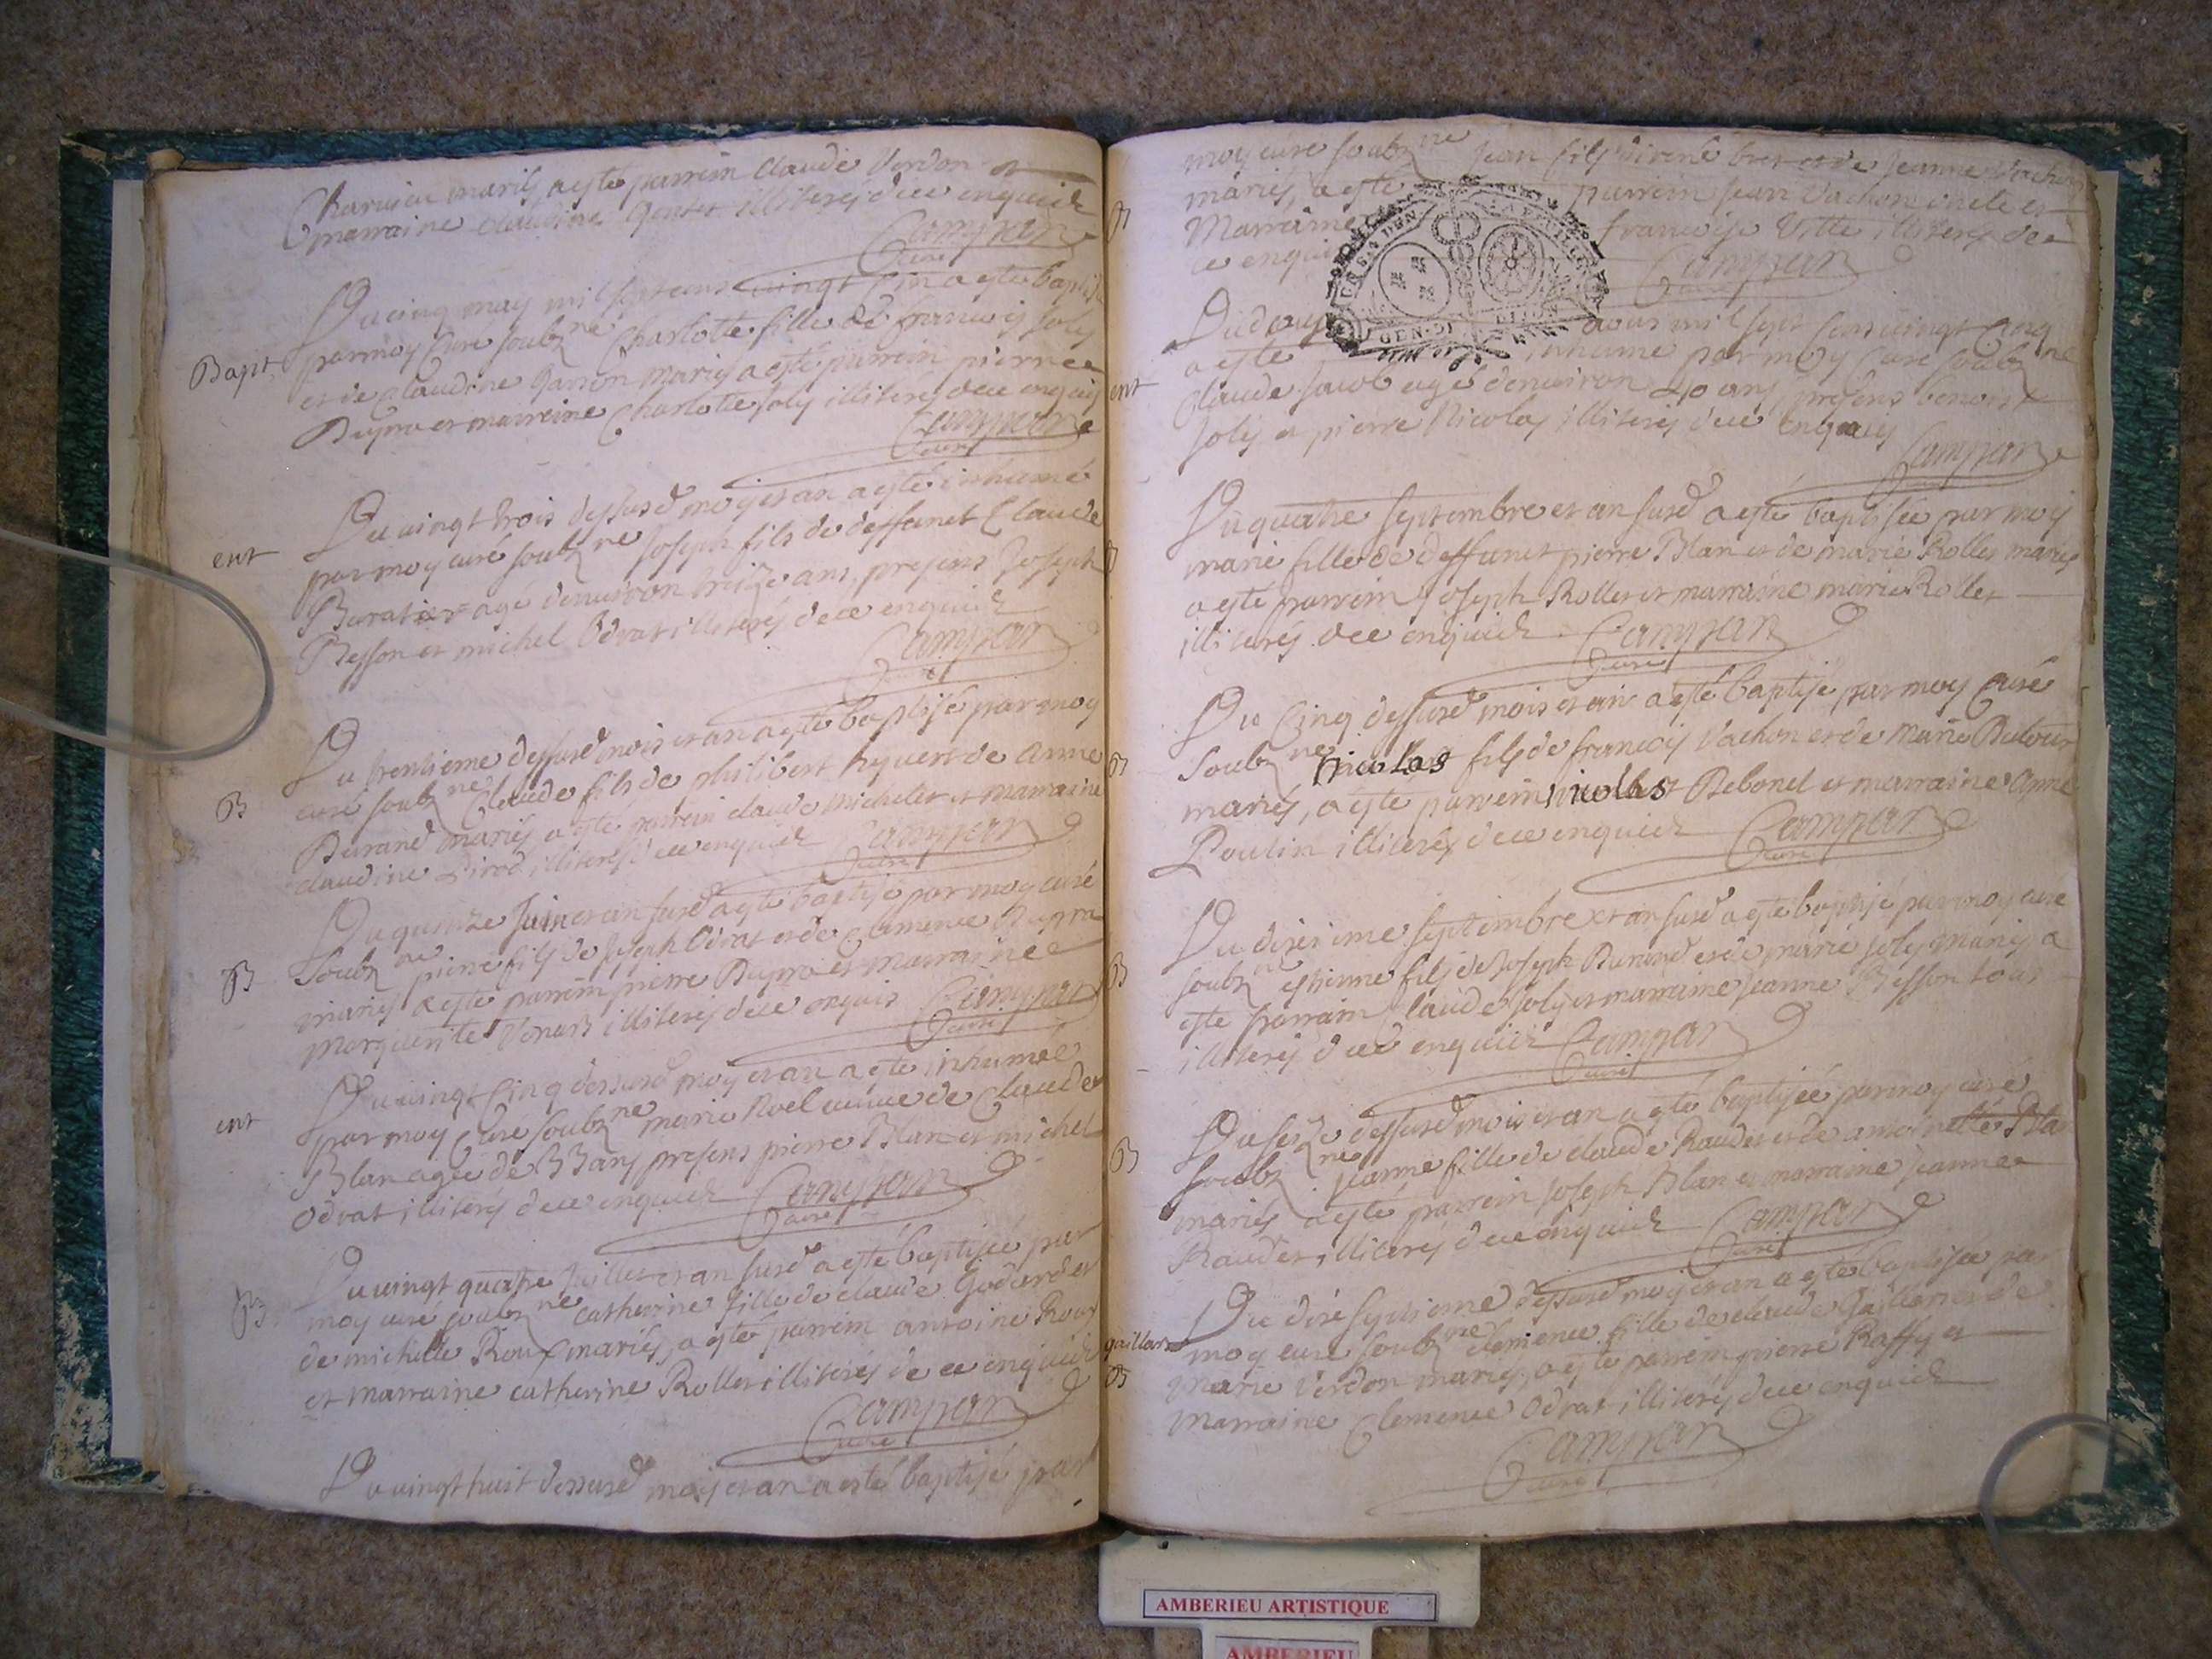 Charvieu mariés, a esté parrein Claude Verdon et
marraine Claudine illiterés de ce enquich
Campan
Curé
Bapt
Du cinq may mil sept cens vingt cinq a esté baptisée
par moy Curé soubz.né Charlotte fille de françois Joly
et de Claudine mariés a esté parrein pierre
Dupra et marreine Charlotte Joly illiterés de ce enquis
Campan
Curé
ent
Du vingt trois dessusd moy et an a esté inhumé
par moy curé soubz.né Joseph fils de deffunct Claude
Buratier agé denviron treize ans, presens Joseph
Besson et michel Odrat illiterés de ce enquich
Campan
Curé
B
Du trentieme dessusd mois et an a esté baptisé par moy
curé soubz.né Claude fils de philibert et de Anne
Durand mariés, a esté parrein claude Michelet et marraine
claudine Pirod, illiterés de ce enquich Campan
Curé
B
Du quinze Juin et an susd a esté baptisé par moy curé
soubz.né pierre fils de Joseph Odrat et de Clemence Dupra
mariés a esté parrein pierre Dupra et marraine
marguerite illiterés de ce enquis Campan
Curé
ent
Du vingt Cinq dessusd moy et an a esté inhumée
par moy Curé soubz.né marie Noel veuve de Claude
Blan agée de 33 ans presens pierre Blan et michel
Odrat illiterés de ce enquich Campan
Curé
B
Du vingt quatre Juillet et an susd a esté baptisée par
moy curé soubz.né catherine fille de claude Godard et
de michelle Roux mariés, a esté parrein antoine Roux
et marraine catherine Rollet illiterés de ce enquich
Campan
Curé
Du vingt huit dessusd moy et an a esté baptisé par
moy curé soubz.né Jean fils d'irené bret et de Jeanne Vachon
B
mariés, a esté parrein Jean Vachon oncle et
Marraine françoise Vitte illiterés de
ce enquis Campan
Curé
GEN. DE DIJON
Du douze aout mil sept cens vingt Cinq
a esté inhumé par moy Curé soubz.né
ent
Claude Jacob agé denviron 40 ans, presens benoist
Joly et pierre Nicolas illiterés de ce enquis
Campan
Curé
Du quatre septembre et an susd a esté baptisée par moy
B
marie fille de deffunct pierre Blan et de marie Rollet mariés
a esté parrein Joseph Rollet et marraine marie Rollet
illiterés de ce enquich Campan
Curé
Du Cinq dessusd mois et an a esté baptisé par moy Curé
B
Soubz.né nicolas fils de francois Vachon et de marie Dutour
mariés, a esté parrein nicolas Debonel et marraine Anne
Poulin illiterés de ce enquich Campan
Curé
Du dixieme septembre et an susd a esté baptisé par moy curé
B
soubz.né estienne fils de Joseph Durand et de marie Joly mariés a
esté parrain Claude Joly et marraine Jeanne Besson tous
illiterés de ce enquich Campan
Curé
Du seize dessusd mois et an a esté baptisée par moy curé
B
soubz.né Jeanne fille de claude Raudet et de antoinette Blan
mariés a esté parrein Joseph Blan et marraine Jeanne
Raudet illiterés de ce enquich Campan
Curé
Du dixseptieme dessusd moy et an a esté baptisée par
gaillard
moy curé soubz.né clemence fille de claude Gaillard et de
B
marie Verdon mariés, a esté parrein pierre Raffy et
marraine Clemence Odrat illiterés de ce enquich
Campan
Curé
AMBERIEU ARTISTIQUE
AMBERIEU